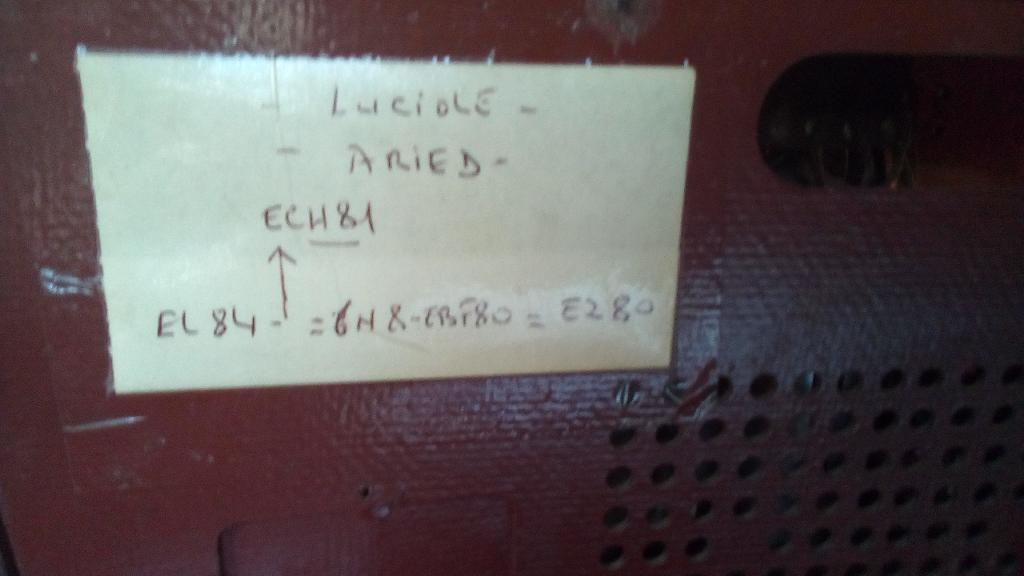 - LUCIOLE -
- ARIED -
ECH81
EL84 - = 6N8 - EBF80 = EZ80